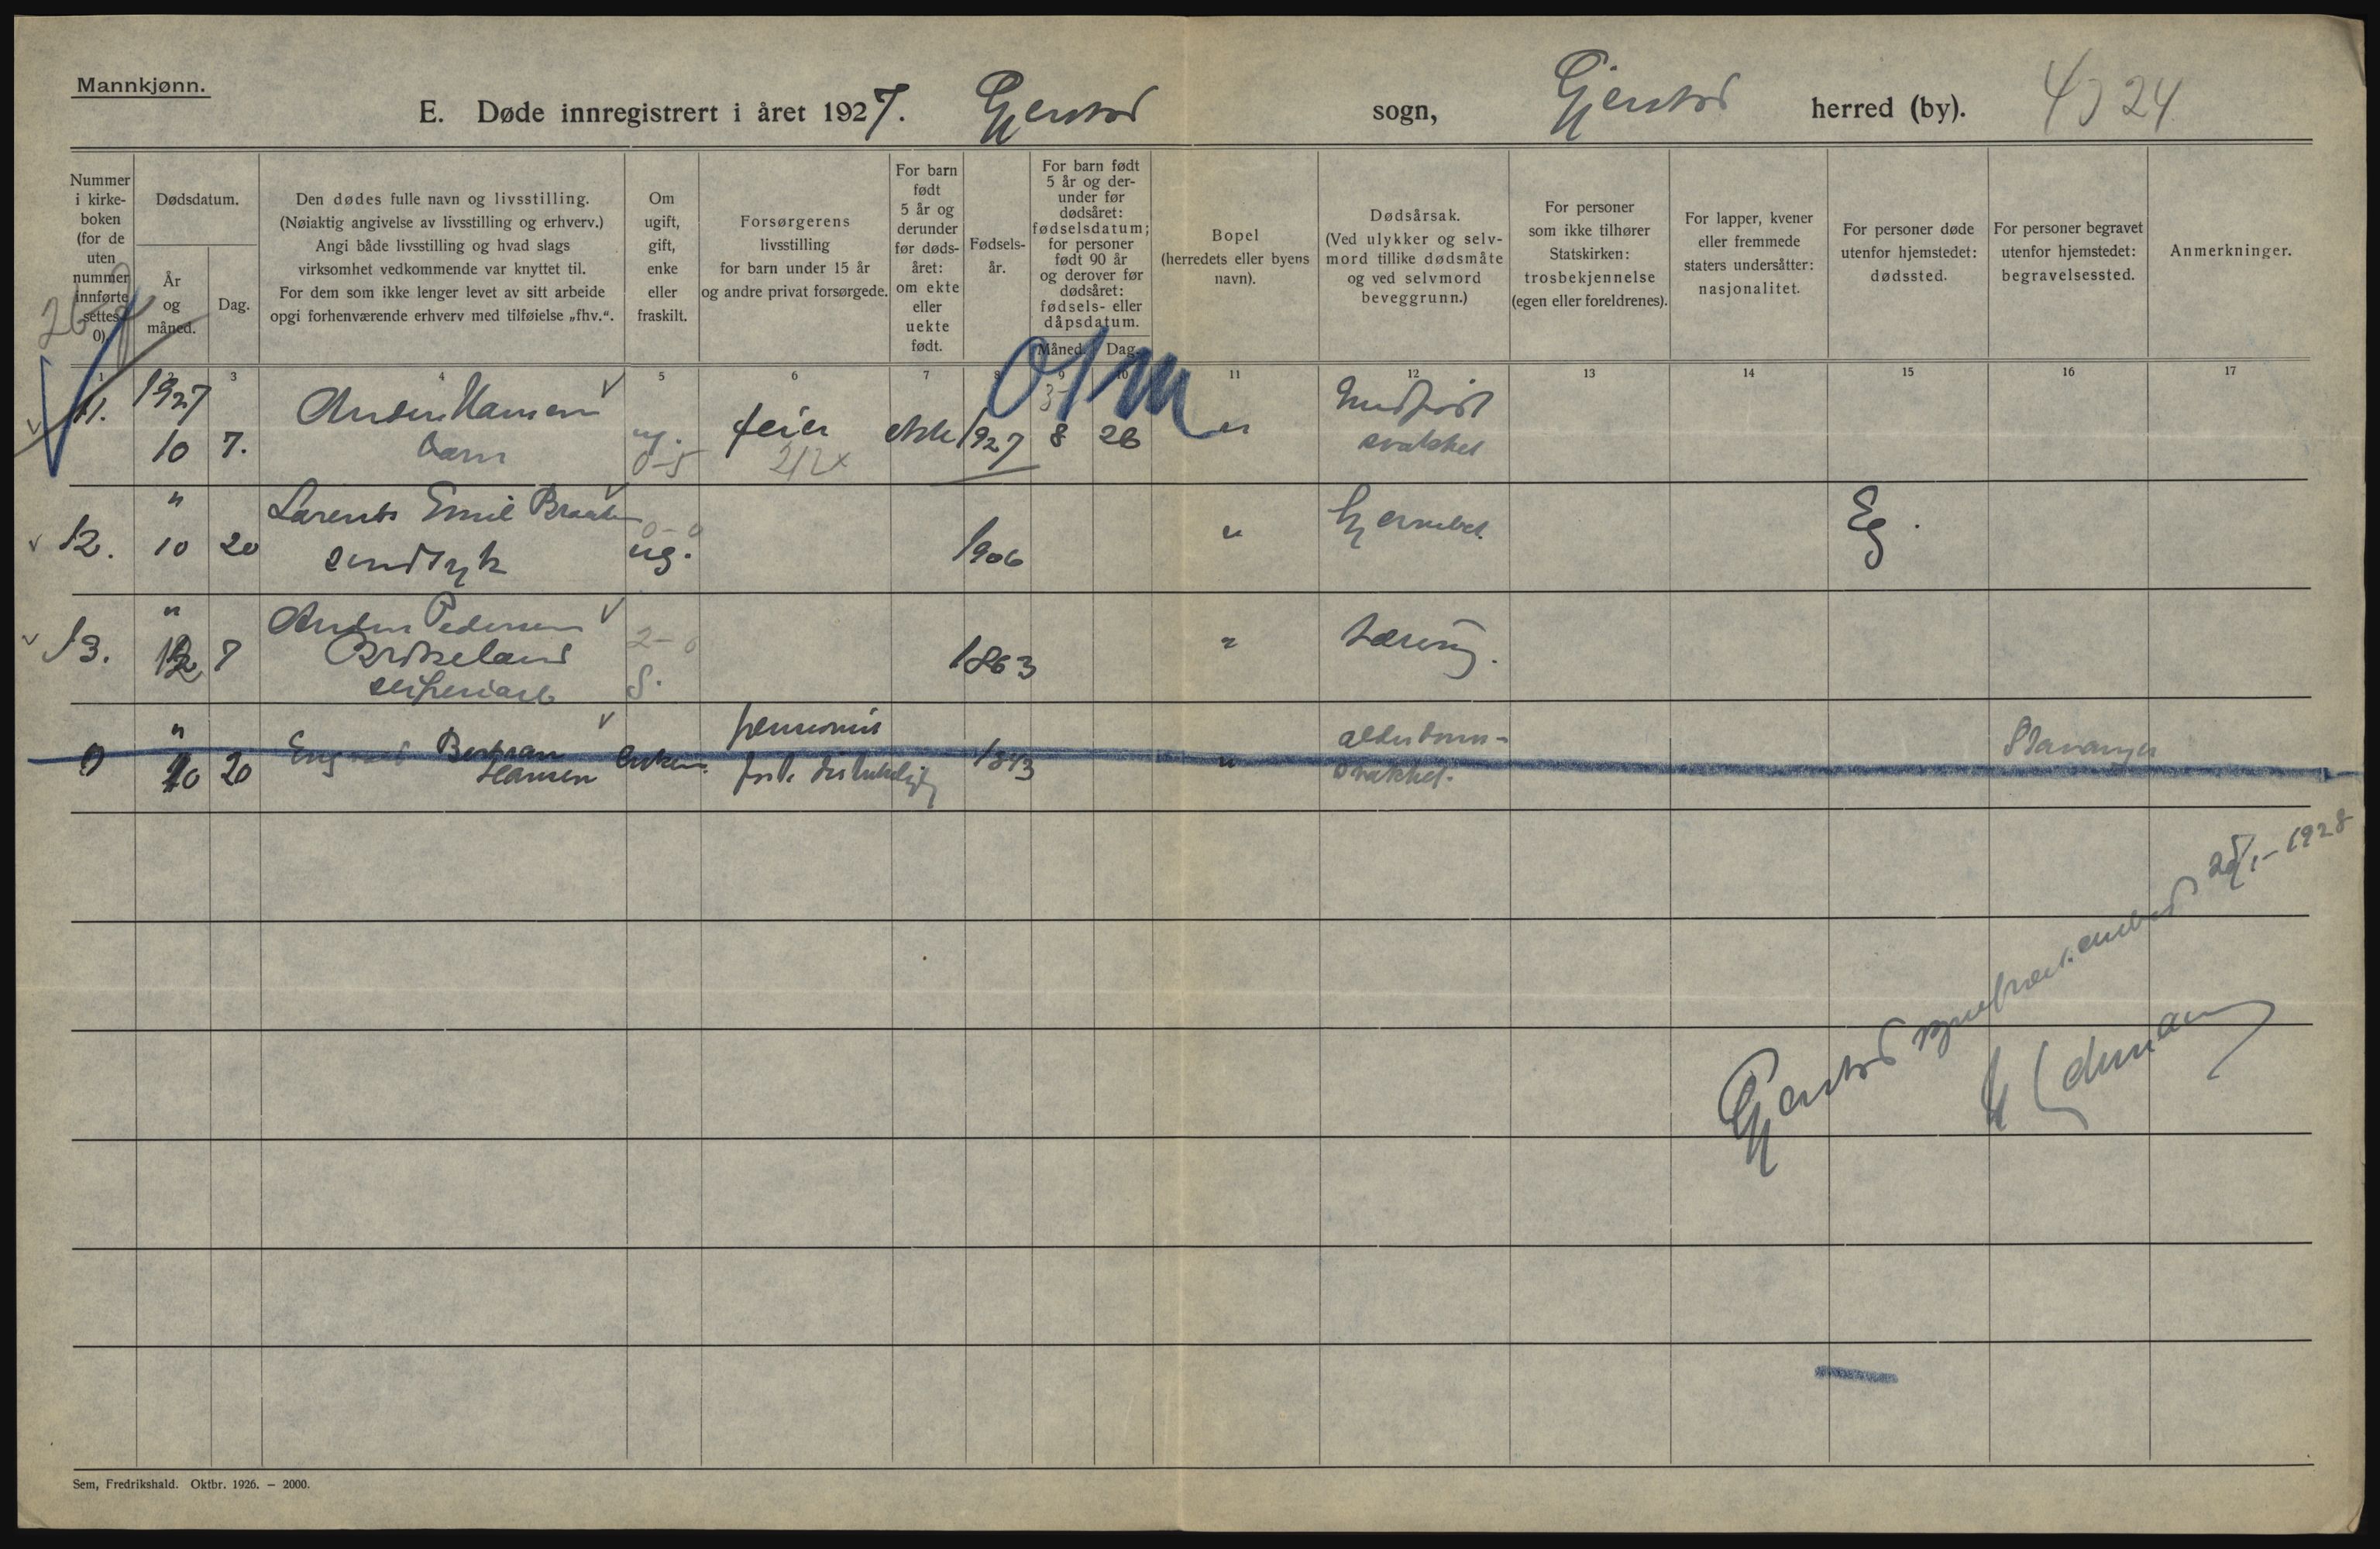 Mannkjønn.
E. Døde innregistrert i året 1927. Gjerstad sogn, Gjerstad herred (by). 4) 24
Nummer i kirkeboken (for de uten nummer innførte settes 0).
Dødsdatum.
År og måned.
Dag.
Den dødes fulle navn og livsstilling.
(Nøiaktig angivelse av livsstilling og erhverv.)
Angi både livsstilling og hvad slags
virksomhet vedkommende var knyttet til.
For dem som ikke lenger levet av sitt arbeide
opgi forhenværende erhverv med tilføielse „fhv.“.
Om ugift, gift, enke eller fraskilt.
Forsørgerens
livsstilling
for barn under 15 år
og andre privat forsørgede.
For barn født 5 år og derunder før dødsåret: om ekte eller uekte født.
Fødselsår.
For barn født 5 år og derunder før dødsåret: fødselsdatum; for personer født 90 år og derover før dødsåret: fødsels- eller dåpsdatum.
Måned. Dag.
Bopel
(herredets eller byens
navn).
Dødsårsak.
(Ved ulykker og selvmord tillike dødsmåte
og ved selvmord
beveggrunn.)
For personer
som ikke tilhører
Statskirken:
trosbekjennelse
(egen eller foreldrenes).
For lapper, kvener
eller fremmede
staters undersåtter:
nasjonalitet.
For personer døde
utenfor hjemstedet:
dødssted.
For personer begravet
utenfor hjemstedet:
begravelsessted.
Anmerkninger.
1 2 3 4 5 6 7 8 9 10 11 12 13 14 15 16 17
11. 1927 10 7. Anders Hansen barn ug. 0-5 feier 212x ekte 1927 8 28 " Medfødt svakhet
12. " 10 20 Laurents Emil Braaten sindsyk 0-0 ug. 1906 " Hjernebet. Eg.
13. " 12 7 Anders Pedersen Brokeland 2-0 S. 1863 " tæring.
0 " 10 20 Bertran Hansen enkem. pensionist 1843 " alderdomssvakhet. Stavanger
Gjerstad sognepræst.embed 25/1-1928
Sem, Fredrikshald. Oktbr. 1926. – 2000.